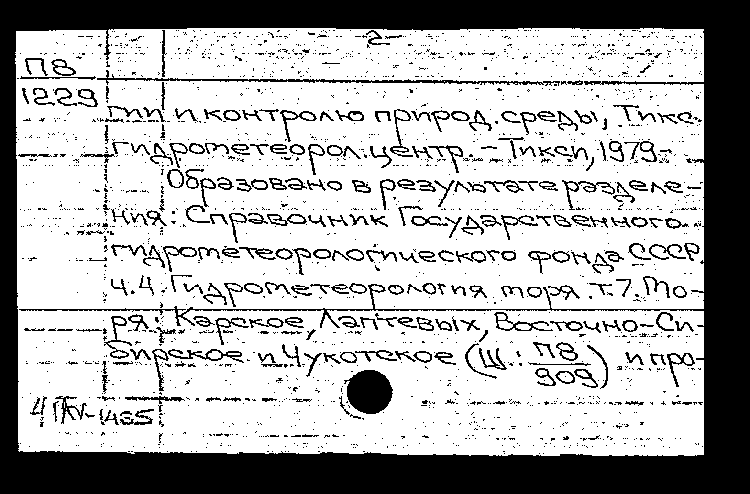 2-
П8
1229
гии и контролю природ. среды, Тикс.
гидрометеорол. центр. - Тикси, 1979-
Образовано в результате разделе-
ния: Справочник Государственного
гидрометеорологического фонда СССР.
Ч.4. Гидрометеорология моря. т.7. Мо-
ря: Карское, Лаптевых, Восточно-Си-
бирское и Чукотское (Ш: П8/909) и про-